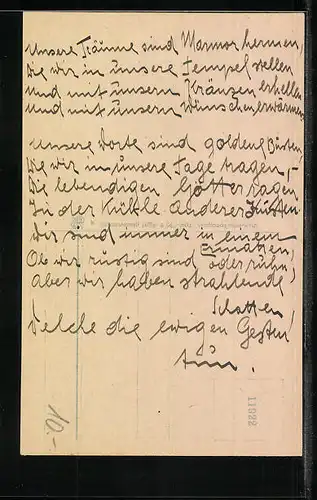 Unsere Träume sind Marmorhermen,
Die wir in unsere Tempel stellen
Und mit unsern Kränzen erhellen
Und mit unsern Wünschen erwärmen
Unsere Worte sind goldene Büsten,
Die wir in unsere Tage tragen, –
Die lebendigen Götter ragen
In der Kühle anderer Küsten.
Wir sind immer in einem
Ermatten,
Ob wir rüstig sind oder ruhn,
Aber wir haben strahlende
Schatten
Welche die ewigen Gesten
tun.
10.-
11922